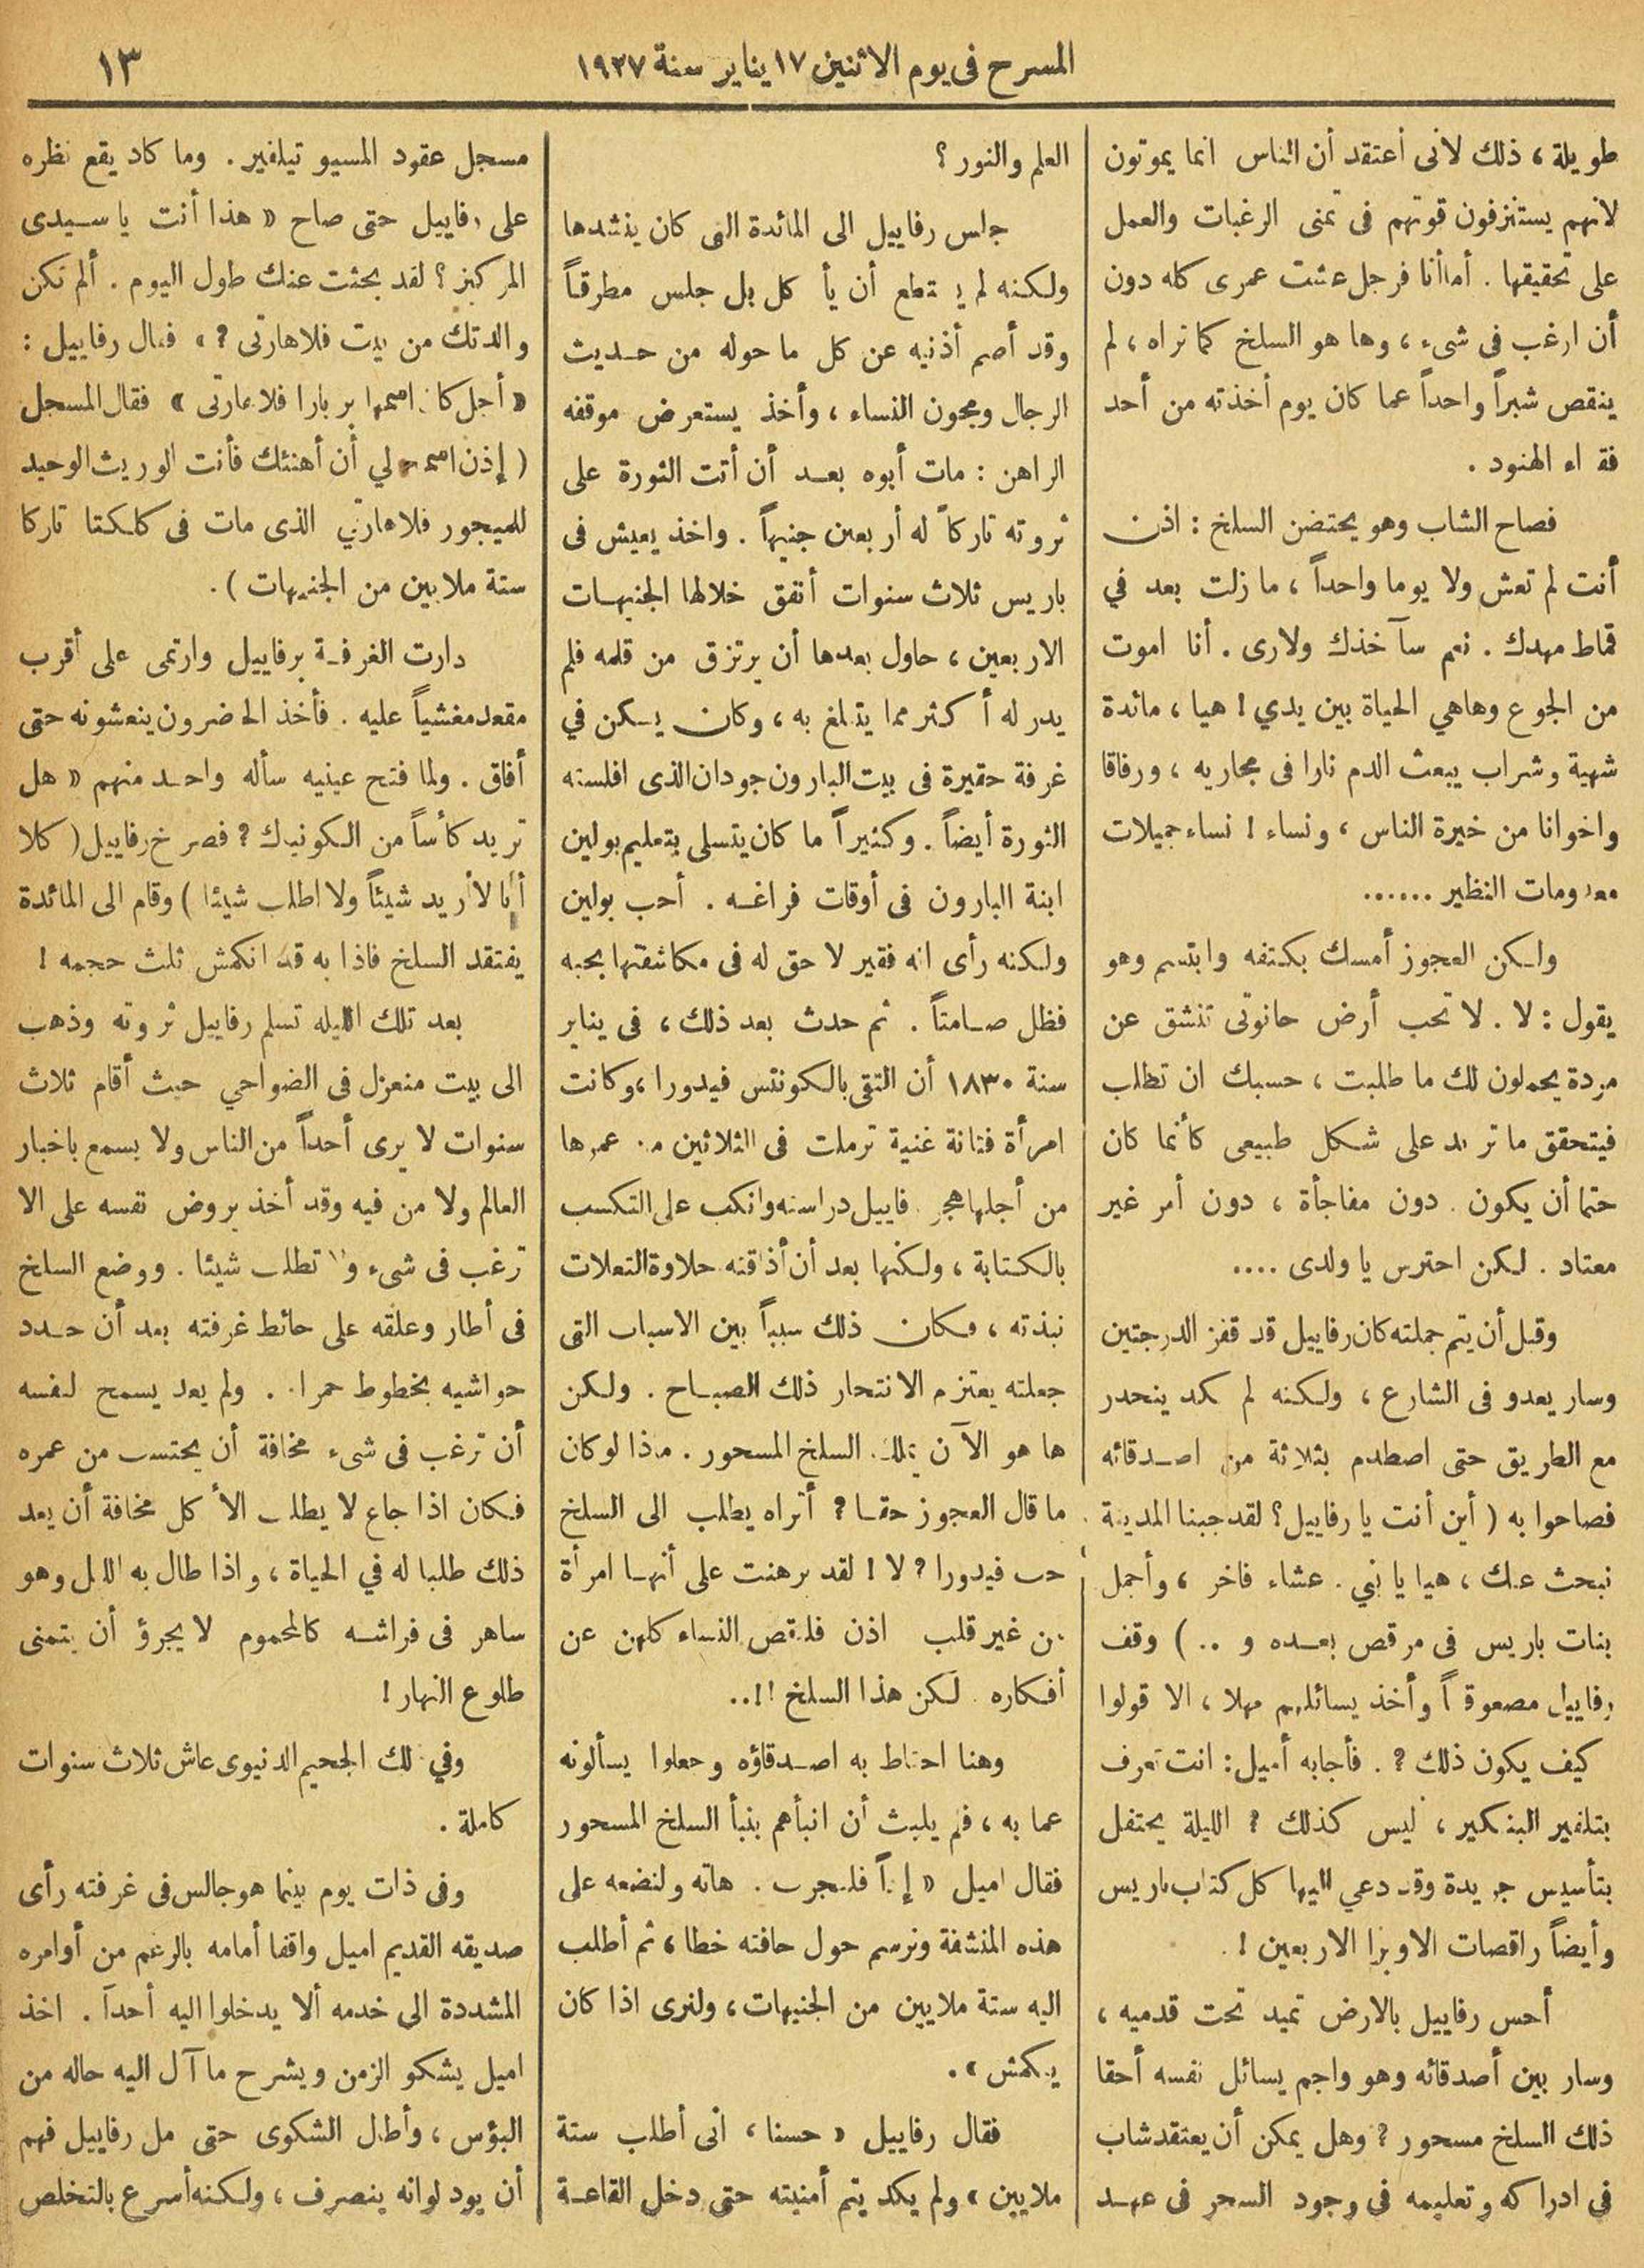 المسرح فى يوم الاثنين ١٧ يناير سنة ١٩٢٧
١٣
طويلة ، ذلك لانى أعتقد أن الناس انما يموتون
لانهم يستنزفون قوتهم فى تمنى الرغبات والعمل
على تحقيقها . أما أنا فرجل عشت عمرى كله دون
أن ارغب فى شىء ، وها هو السلخ كما تراه ، لم
ينقص شبراً واحداً عما كان يوم أخذته من أحد
فقراء الهنود .
فصاح الشاب وهو يحتضن السلخ : اذن
أنت لم تعش ولا يوما واحداً ، ما زلت بعد في
قماط مهدك . نعم سآخذك ولارى . أنا اموت
من الجوع وهاهي الحياة بين يدي ! هيا ، مائدة
شهية وشراب يبعث الدم نارا فى مجاريه ، ورفاقا
واخوانا من خيرة الناس ، ونساء ! نساء جميلات
معدومات النظير ......
ولكن العجوز أمسك بكتفه وابتسم وهو
يقول : لا . لا تحب أرض حانوتى تنشق عن
مردة يحملون لك ما طلبت ، حسبك ان تطلب
فيتحقق ما تريد على شكل طبيعى كأنما كان
حتما أن يكون . دون مفاجأة ، دون أمر غير
معتاد . لكن احترس يا ولدى ....
وقبل أن يتم جملته كان رفاييل قد قفز الدرجتين
وسار يعدو فى الشارع ، ولكنه لم يكد ينحدر
مع الطريق حتى اصطدم بثلاثة من اصدقائه
فصاحوا به ( أين أنت يا رفاييل ؟ لقد جبنا المدينة
نبحث عنك ، هيا يا نبي . عشاء فاخر ، وأجمل
بنات باريس فى مرقص بعده و .. ) وقف
رفاييل مصعوقاً وأخذ يسائلهم مهلا ، الا قولوا
كيف يكون ذلك ؟ . فأجابه أميل : انت تعرف
بتلفير البنكير ، ليس كذلك ؟ الليلة يحتفل
بتأسيس جريدة وقد دعي اليها كل كتاب باريس
وأيضاً راقصات الاوبرا الاربعين ! .
أحس رفاييل بالارض تميد تحت قدميه ،
وسار بين أصدقائه وهو واجم يسائل نفسه أحقا
ذلك السلخ مسحور ؟ وهل يمكن أن يعتقد شاب
فى ادراكه وتعليمه فى وجود السحر فى عهد
العلم والنور ؟
جلس رفاييل الى المائدة التى كان ينشدها
ولكنه لم يستطع أن يأكل بل جلس مطرقاً
وقد أصم أذنيه عن كل ما حوله من حديث
الرجال ومجون النساء ، وأخذ يستعرض موقفه
الراهن : مات أبوه بعد أن أتت الثورة على
ثروته تاركاً له أربعين جنيهاً . واخذ يعيش فى
باريس ثلاث سنوات أنفق خلالها الجنيهات
الاربعين ، حاول بعدها أن يرتزق من قلمه فلم
يدر له أكثر مما يتبلغ به ، وكان يسكن في
غرفة حقيرة فى بيت البارون جودان الذى افلسته
الثورة أيضاً . وكثيراً ما كان يتسلى بتعليم بولين
ابنة البارون فى أوقات فراغه . أحب بولين
ولكنه رأى انه فقير لا حق له فى مكاشفتها بحبه
فظل صامتاً . ثم حدث بعد ذلك ، فى يناير
سنة ١٨٣٠ أن التقى بالكونتس فيدورا ، وكانت
امرأة فتانة غنية ترملت فى الثلاثين من عمرها
من أجلها هجر رفاييل دراسته وانكب على التكسب
بالكتابة ، ولكنها بعد أن أذاقته حلاوة التعلات
نبذته ، فكان ذلك سبباً بين الاسباب التى
جعلته يعتزم الانتحار ذلك الصباح . ولكن
ها هو الآن يملك السلخ المسحور . ماذا لو كان
ما قال العجوز حقا ؟ أتراه يطلب الى السلخ
حب فيدورا ؟ لا ! لقد برهنت على أنها امرأة
من غير قلب اذن فلتقص النساء كلهن عن
أفكاره . لكن هذا السلخ !!..
وهنا احتاط به اصدقاؤه وجعلوا يسألونه
عما به ، فلم يلبث أن انبأهم بنبأ السلخ المسحور
فقال اميل « إذاً فلنجرب . هاته ولنضعه على
هذه المنشفة ونرسم حول حافته خطا ، ثم أطلب
اليه ستة ملايين من الجنيهات ، ولنرى اذا كان
يكمش » .
فقال رفاييل « حسنا ، انى أطلب ستة
ملايين » ولم يكد يتم أمنيته حتى دخل القاعة
مسجل عقود المسيو تيلفير . وما كاد يقع نظره
على رفاييل حتى صاح « هذا أنت يا سيدى
المركيز ؟ لقد بحثت عنك طول اليوم . ألم تكن
والدتك من بيت فلاهارتى ؟ » فقال رفاييل :
« أجل كان اسمها بربارا فلاهارتى » فقال المسجل
( إذن اسمح لي أن أهنئك فأنت الوريث الوحيد
للميجور فلاهارتي الذى مات فى كلكتا تاركا
ستة ملايين من الجنيهات ) .
دارت الغرفة برفاييل وارتمى على أقرب
مقعد مغشياً عليه . فأخذ الحاضرون ينعشونه حتى
أفاق . ولما فتح عينيه سأله واحد منهم « هل
تريد كأساً من الكونياك ؟ فصرخ رفاييل ( كلا
أنا لا أريد شيئاً ولا اطلب شيئا ) وقام الى المائدة
يفتقد السلخ فاذا به قد انكمش ثلث حجمه !
بعد تلك الليله تسلم رفاييل ثروته وذهب
الى بيت منعزل فى الضواحي حيث أقام ثلاث
سنوات لا يرى أحداً من الناس ولا يسمع باخبار
العالم ولا من فيه وقد أخذ يروض نفسه على الا
ترغب فى شىء ولا تطلب شيئا . ووضع السلخ
فى أطار وعلقه على حائط غرفته بعد أن حدد
حواشيه بخطوط حمراء . ولم يعد يسمح لنفسه
أن ترغب فى شىء مخافة أن يحتسب من عمره
فكان اذا جاع لا يطلب الأكل مخافة أن يعد
ذلك طلبا له في الحياة ، واذا طال به الليل وهو
ساهر فى فراشه كالمحموم لا يجرؤ أن يتمنى
طلوع النهار !
وفي ذلك الجحيم الدنيوى عاش ثلاث سنوات
كاملة .
وفى ذات يوم بينما هو جالس فى غرفته رأى
صديقه القديم اميل واقفا أمامه بالرغم من أوامره
المشددة الى خدمه ألا يدخلوا اليه أحداً . اخذ
اميل يشكو الزمن ويشرح ما آل اليه حاله من
البؤس ، وأطال الشكوى حتى مل رفاييل فهم
أن يود لو انه ينصرف ، ولكنه أسرع بالتخلص